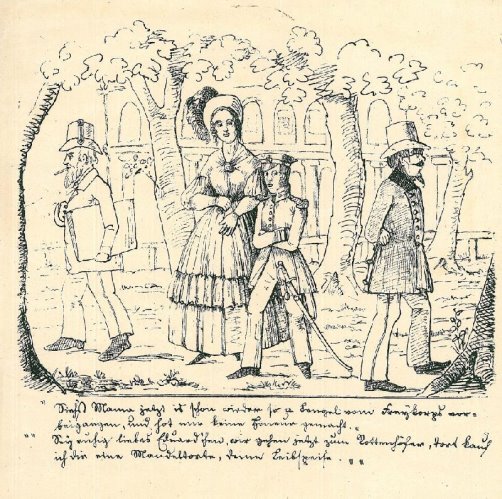 „ Siehst Mama jetzt is schon wieder so a Bengel vom Freykorps vor-
beigangen, und hot mir keine Honeur gemacht. "
„ Sey ruhig liebes Eduardchen, wir gehen jetzt zum Rottenhöfer, dort kauf
ich dir eine Mandeltorte, deine Leibspeise. "